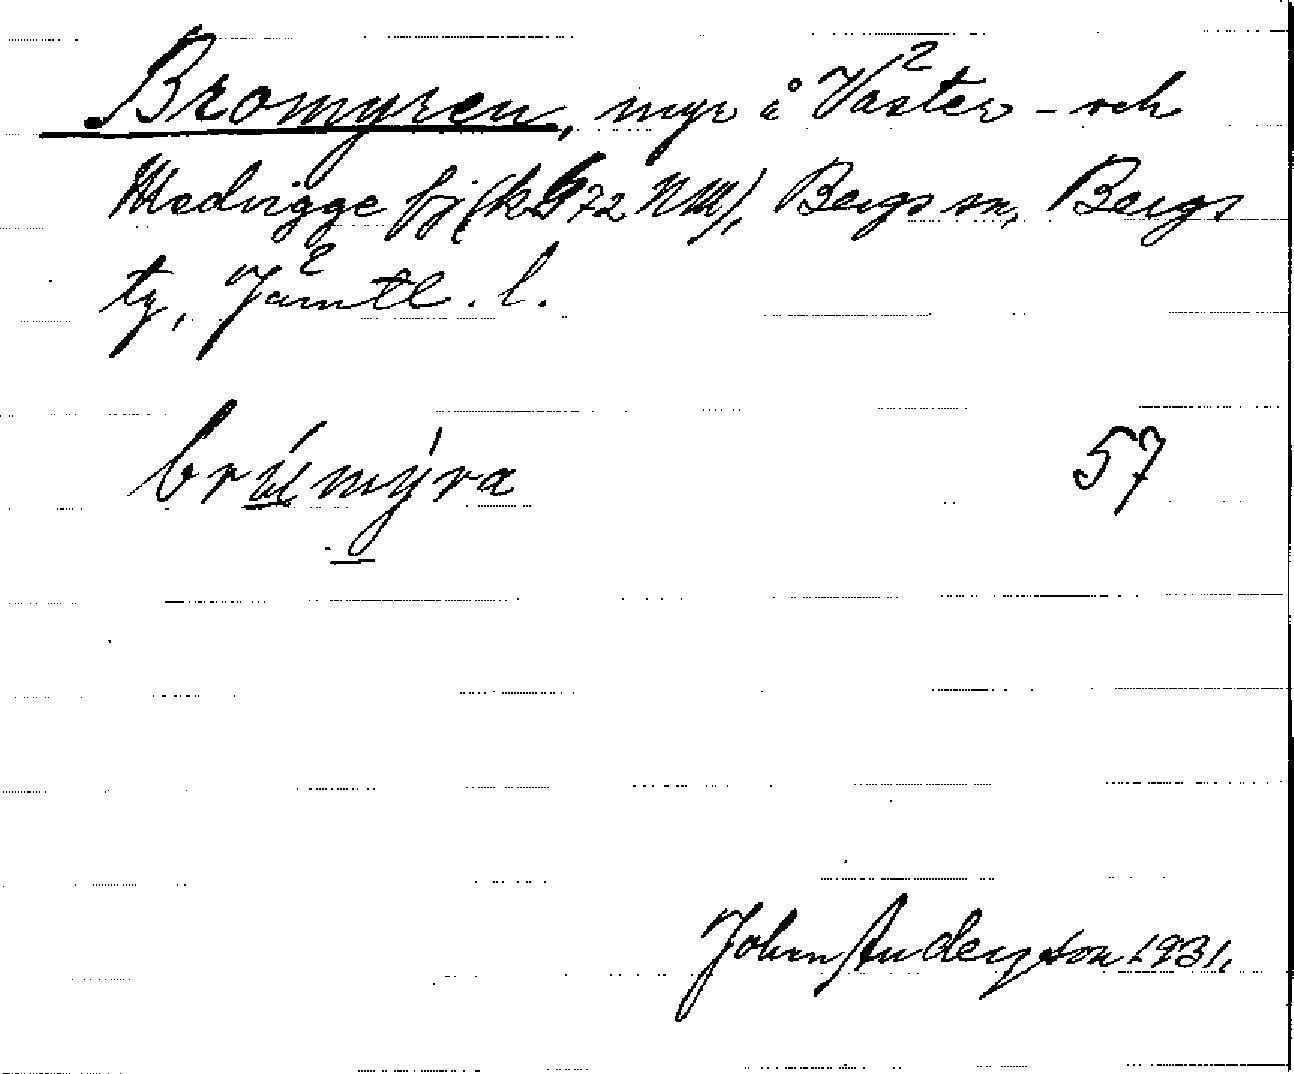 Bromyren, myr å Väster- och
Medrigge fj (kbl 72 NM), Bergs sn, Bergs
tg, Jämtl. l.
brúmýra 57
John Anderzon 1931.